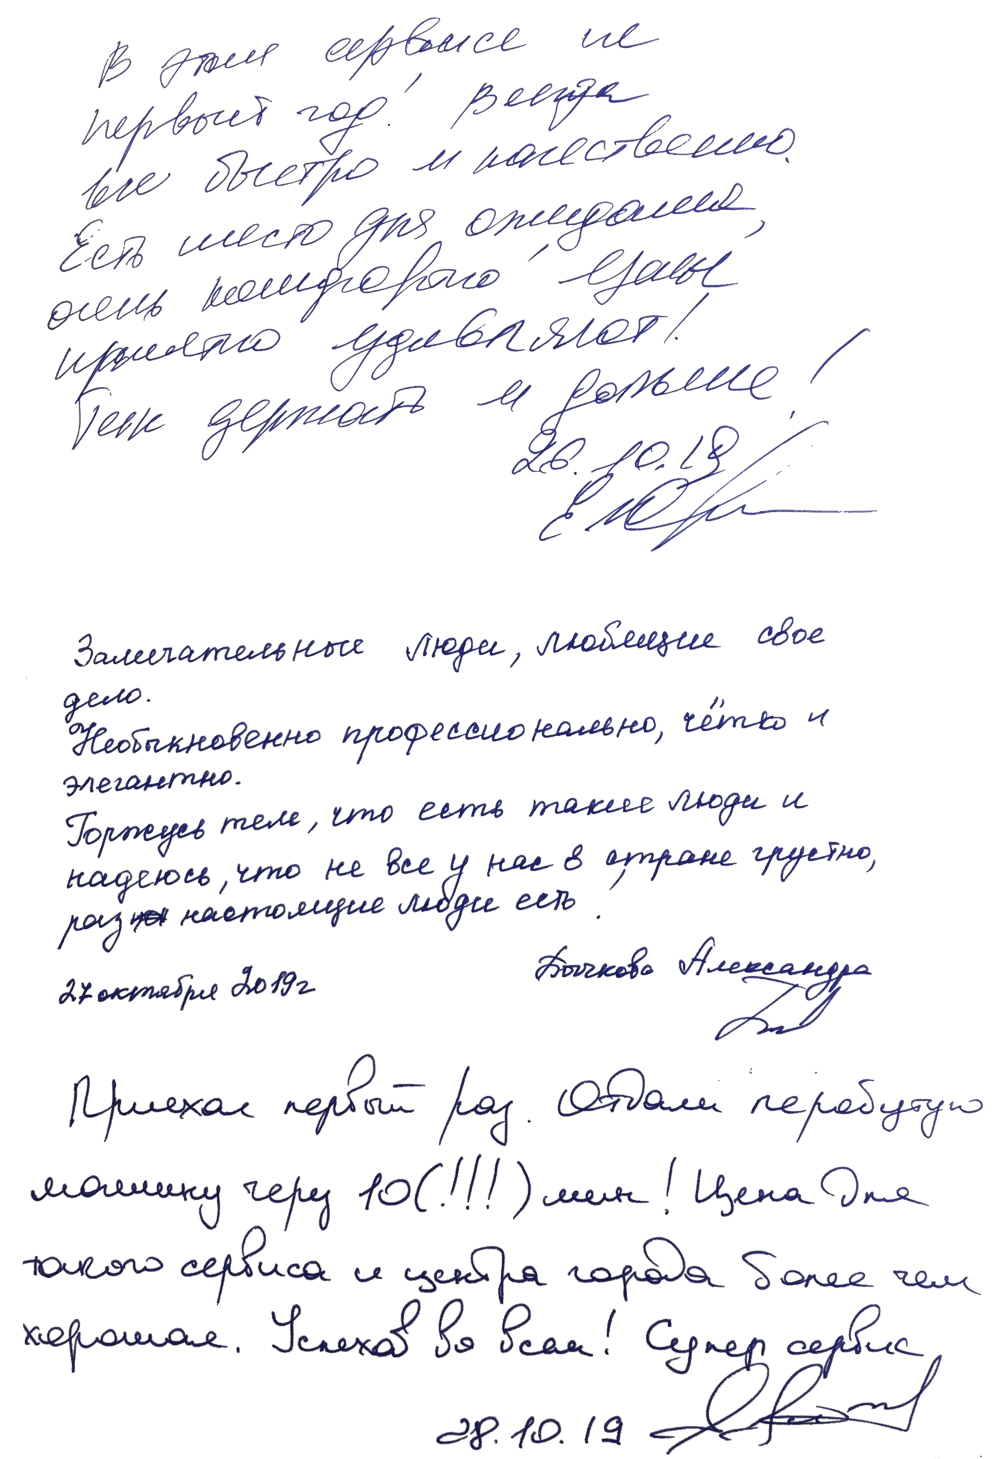 В этом сервисе не
первый год! Всегда
все быстро и качественно.
Есть место для ожидания,
очень комфортно! Цены
приятно удивляют!
Так держать и дальше!
26.10.19
Замечательные люди, любящие свое
дело.
Необыкновенно профессионально, чётко и
элегантно.
Горжусь тем, что есть такие люди и
надеюсь, что не все у нас в стране грустно,
раз настоящие люди есть!
27 октября 2019г
Бычкова Александра
Приехал первый раз. Отдали переобутую
машину через 10(!!!) мин! Цена для
такого сервиса и центра города более чем
хорошая. Успехов во всем! Супер сервис
28.10.19